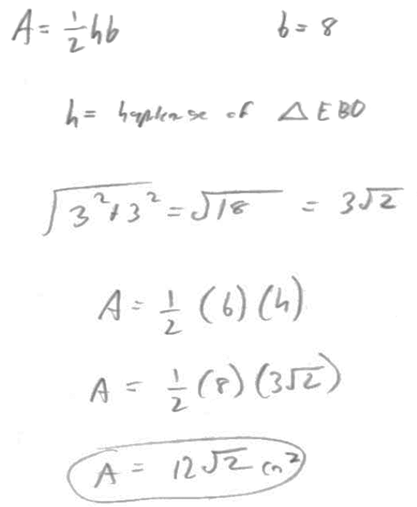 A = 1/2 hb b = 8
h = of △EBO
√(3² + 3²) = √18 = 3√2
A = 1/2 (b)(h)
A = 1/2 (8)(3√2)
A = 12√2 cm²